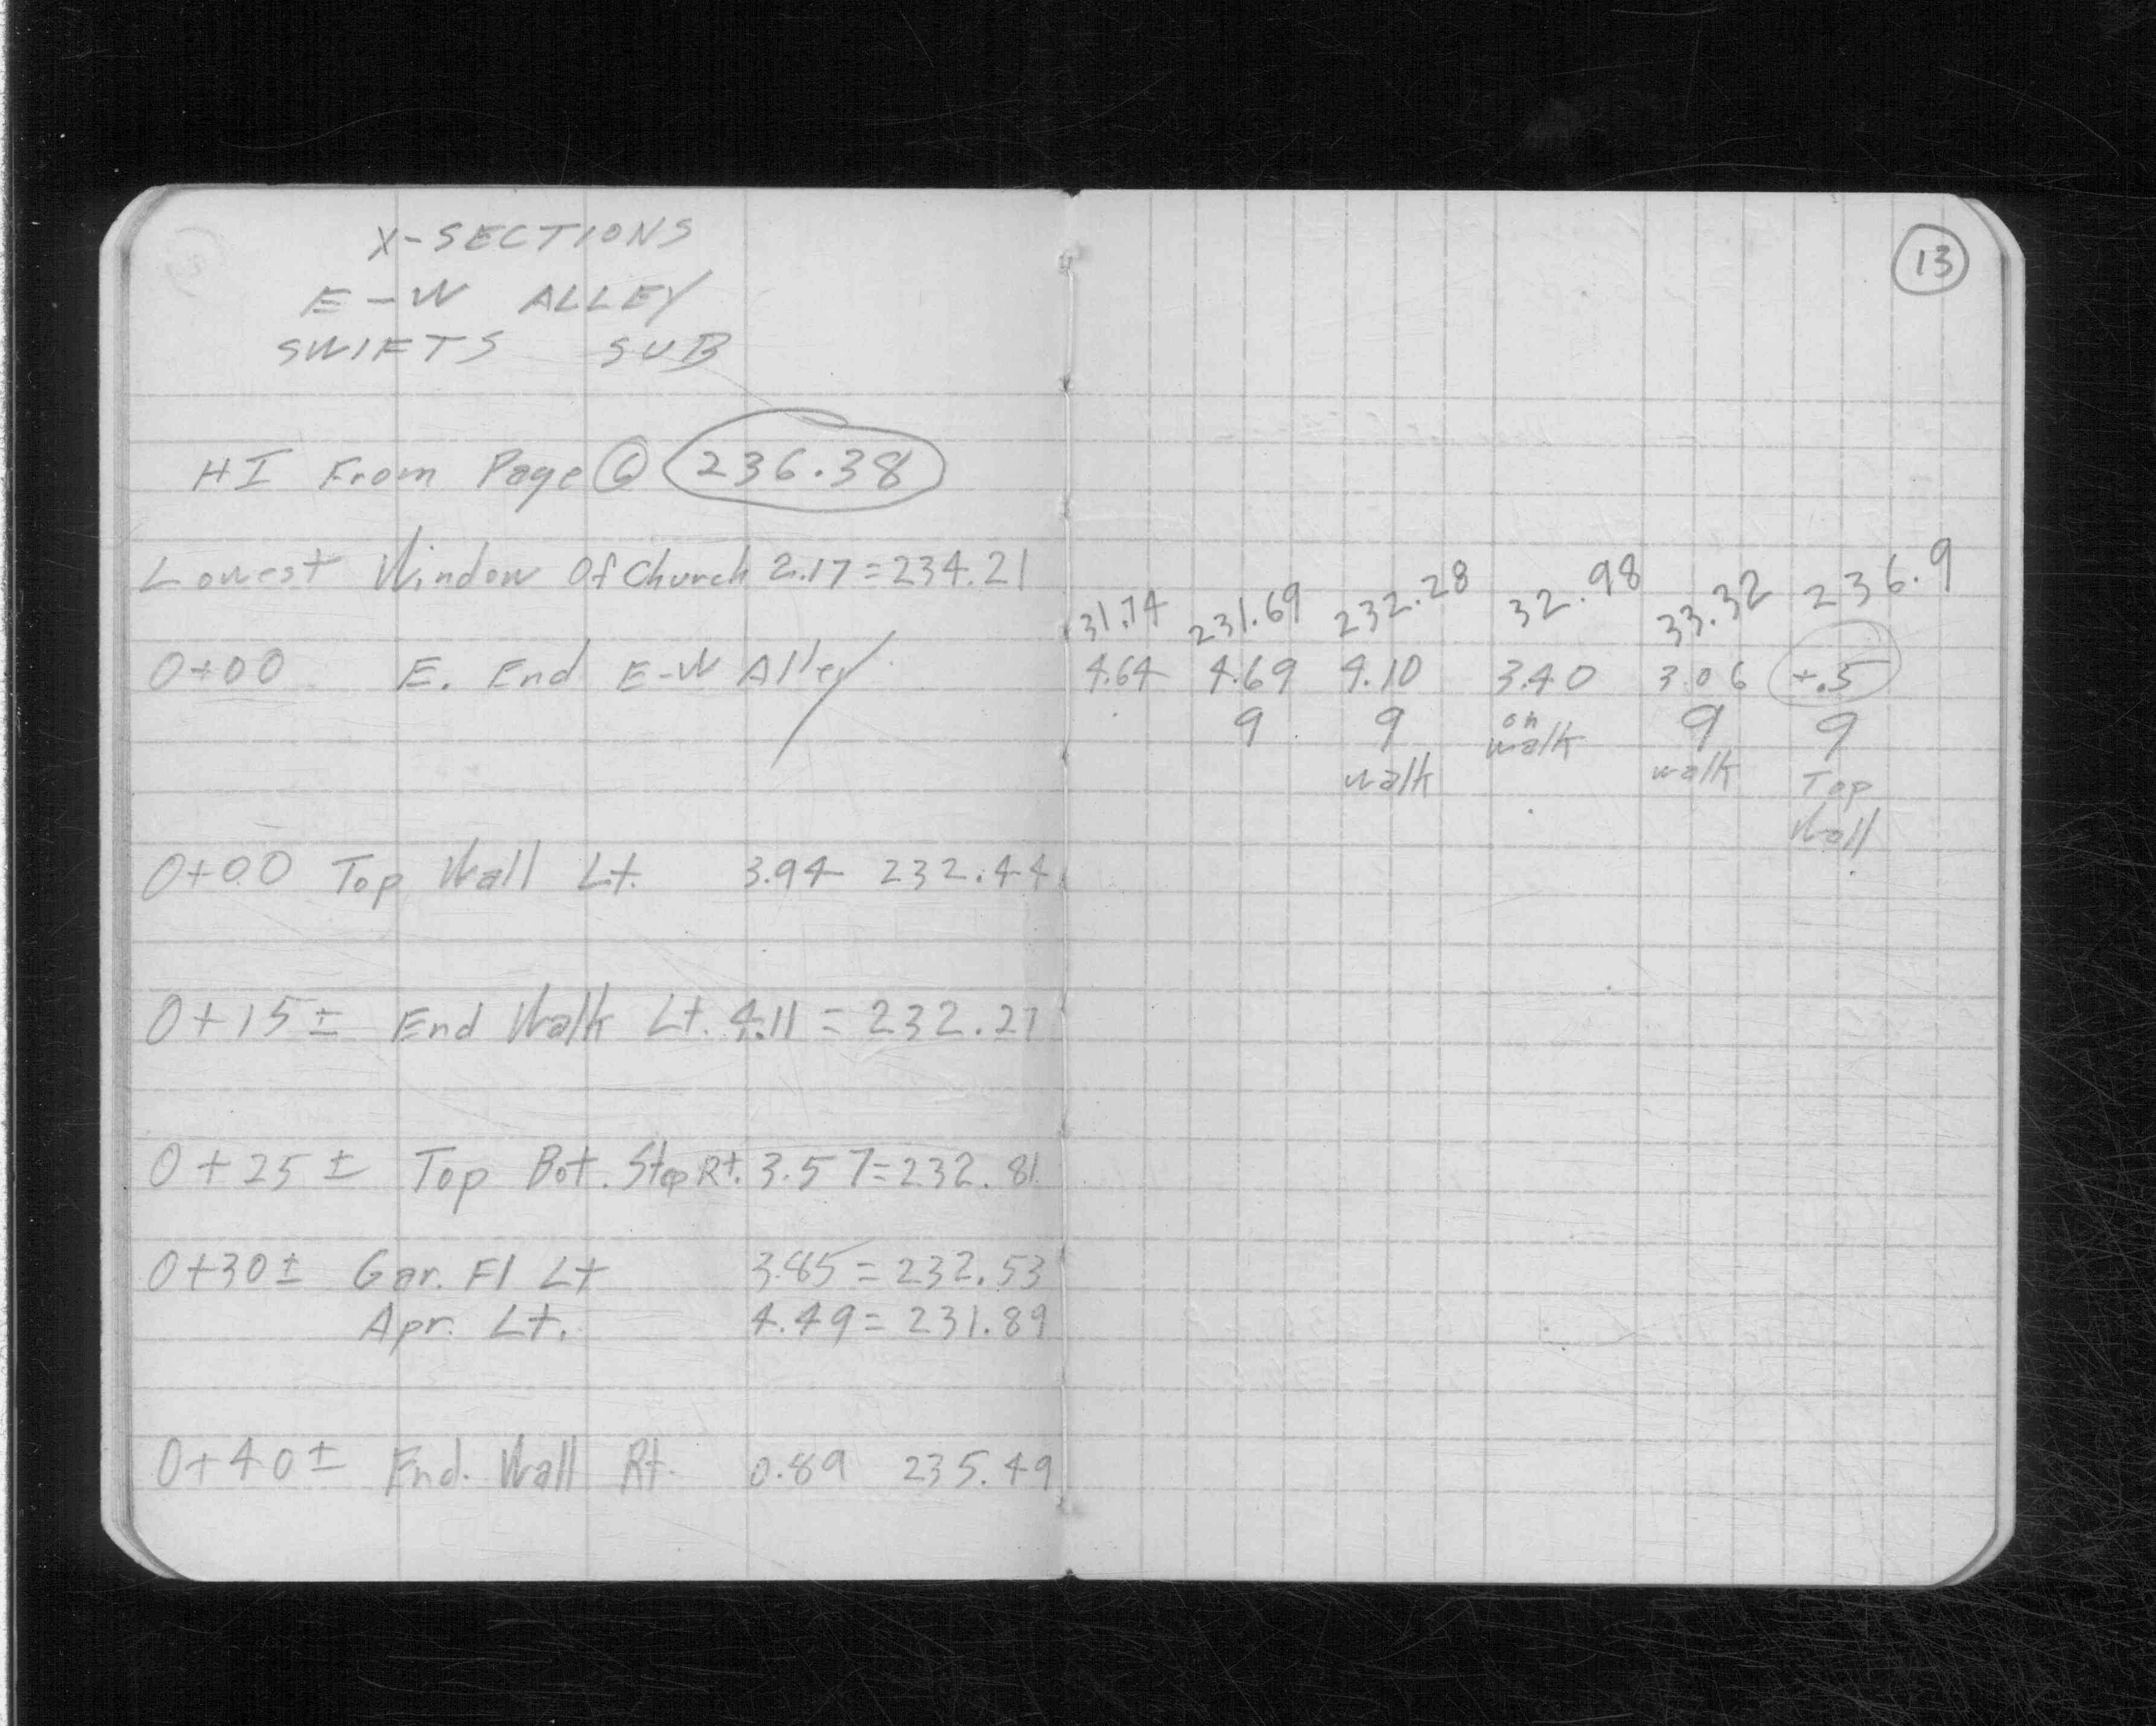 X-SECTIONS
E-W ALLEY
SWIFTS SUB
HI From Page 6 236.38
Lowest Window Of Church 2.17 = 234.21
0+00 E. End E-W Alley
0+00 Top Wall Lt. 3.94 232.44
0+15± End Walk Lt. 4.11 = 232.27
0+25± Top Bot. Step Rt. 3.57 = 232.81
0+30± Gar. Fl Lt 3.85 = 232.53
Apr. Lt. 4.49 = 231.89
0+40± End. Wall Rt. 0.89 235.49
13
31.74 231.69 232.28 32.98 33.32 236.9
4.64 4.69 4.10 3.40 3.06 +.5
9 9 on walk 9 9
walk walk Top
Wall